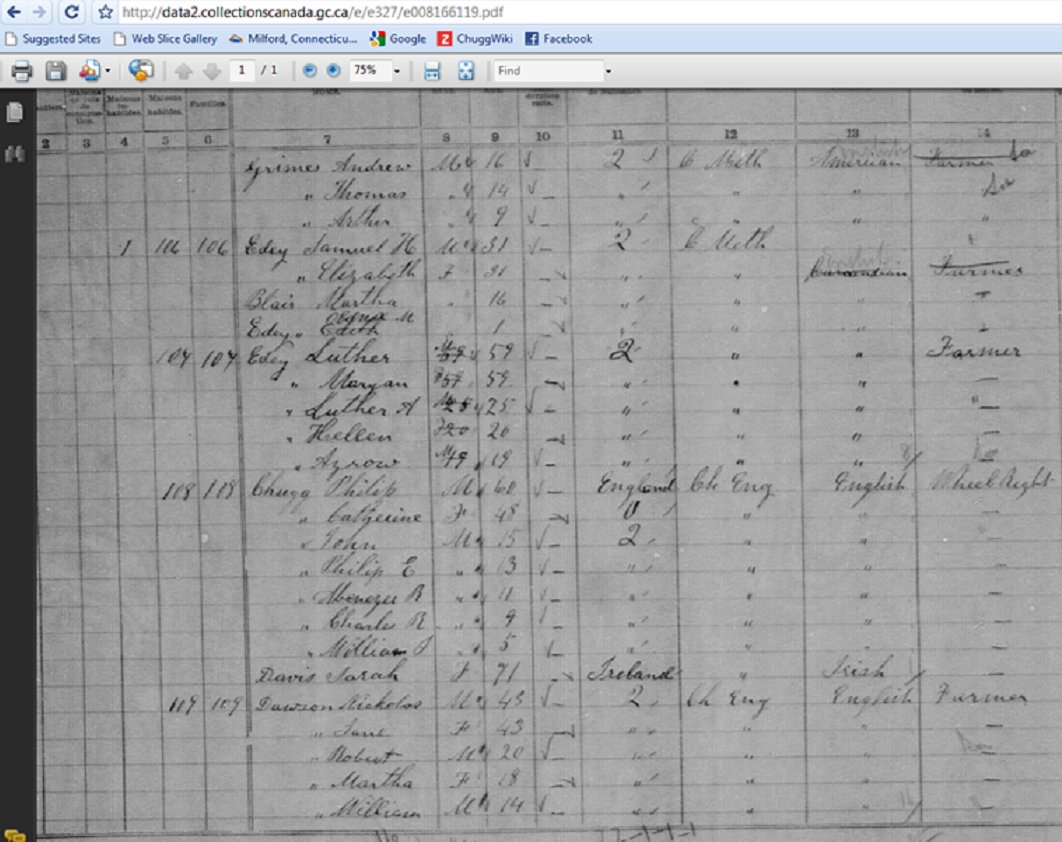 http://data2.collectionscanada.gc.ca/e/e327/e008166119.pdf
Suggested Sites Web Slice Gallery Milford, Connecticu... Google ChuggWiki Facebook
1 / 1 75% Find
Maisons habitées. Familles.
2 3 4 5 6 7 8 9 10 11 12 13 14
Grimes Andrew M 16 2 C Meth American Farmer
" Thomas " 14 " " "
" " 9 " " " "
1 106 106 Edey Samuel H M 31 2 C Meth
" Elizabeth F 31 " " Farmer
Blair Martha " 16 " " "
Edey " M " 1 " " "
107 107 Edey Luther 59 2 " " Farmer
" Maryan 59 " " " —
" Luther A 25 " " " —
" Hellen 20 " " " —
" 19 " " "
108 108 Chugg Philip M 60 England Ch Eng English Wheel Right
" Catherine F 48 " "
" John M 15 2 " " —
" Philip E " 13 " " " —
" Ebenezer R " 11 " " " —
" Charles R " 9 " " " —
" William " 5 " " " —
Davis Sarah F 71 Ireland " Irish —
109 109 Dawson Nickolos M 45 2 Ch Eng English Farmer
" Jane F 43 " " " —
" Robert M 20 " " " —
" Martha F 18 " " " —
" William M 14 " " " —